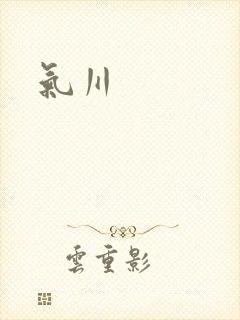 氣川
雲重影